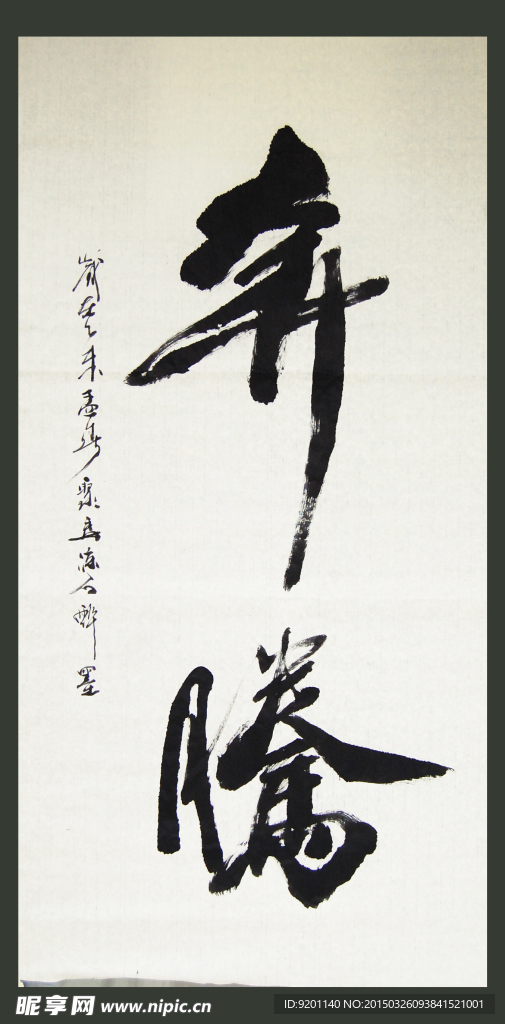 奔騰
歲癸未孟
墨
昵享网 www.nipic.cn
ID:9201140 NO:20150326093841521001